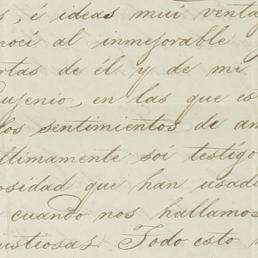 s, é ideas mui venta
noci al inmejorable
rtas de él y de mi
ugenio, en las que es
los sentimientos de am
ltimamente soi testigo
osidad que han usado
cuando nos hallamos
ustiosas. Todo esto